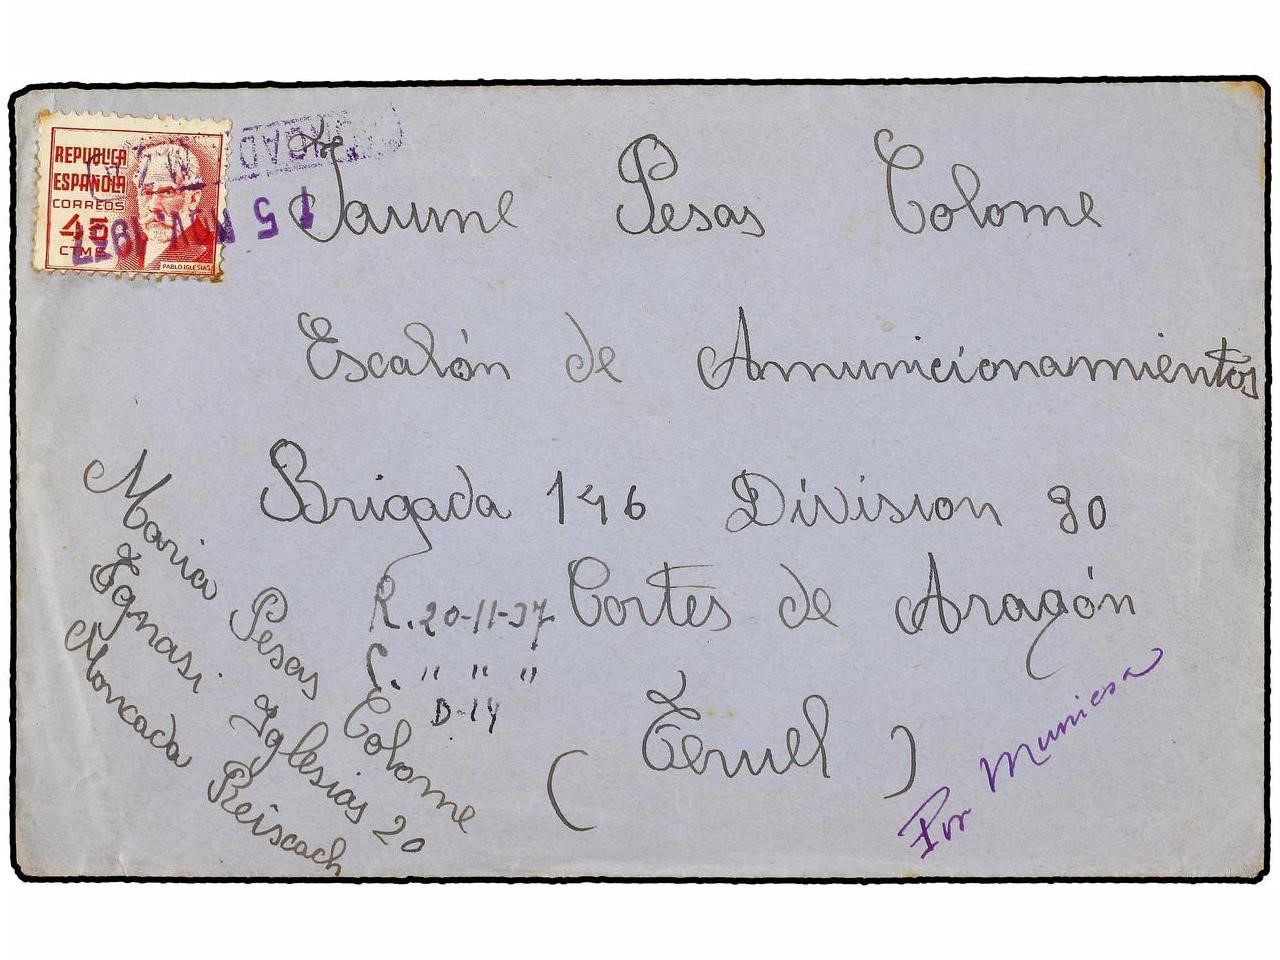 REPUBLICA
ESPAÑOLA
CORREOS
45
CTMS
PABLO IGLESIAS
15 NOV. 1937
Jaume Pesas Colome
Escalón de Amunicionamientos
Brigada 146 Division 30
Cortes de Aragón
(Teruel)
Por Muniesa
R. 20-11-37
C. " " "
D-14
Maria Pesas Colome
Ignasi Iglesias 20
Moncada Reiscach